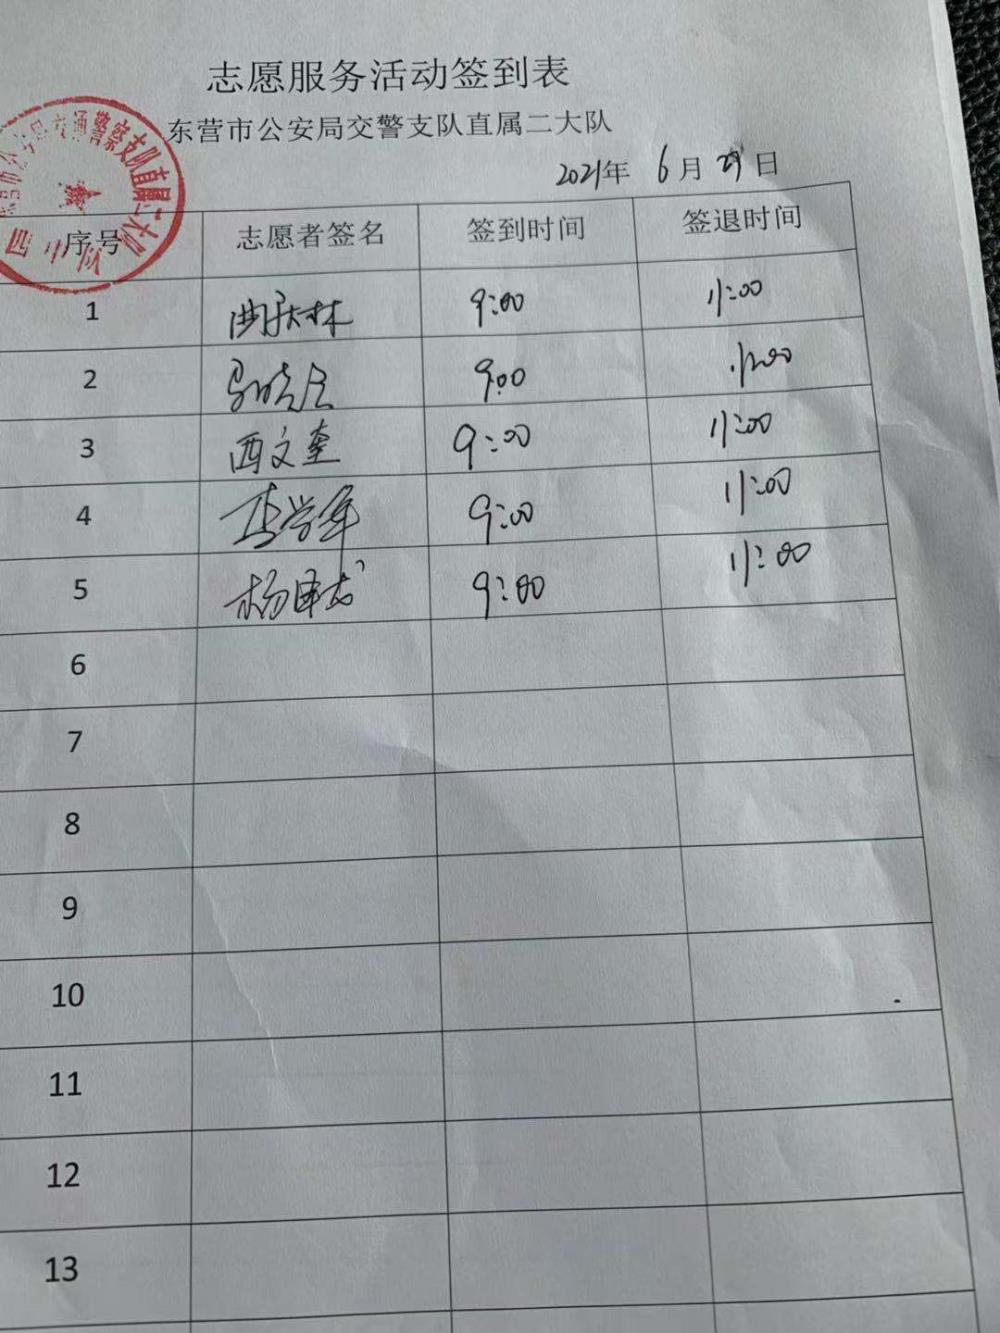 志愿服务活动签到表
东营市公安局交警支队直属二大队
2021年 6月 29日
序号 志愿者签名 签到时间 签退时间
1 曲庆林 9:00 11:00
2 9:00 11:00
3 西文奎 9:00 11:00
4 李学军 9:00 11:00
5 杨 9:00 11:00
6
7
8
9
10
11
12
13
交通警察支队直属二大队
四中队